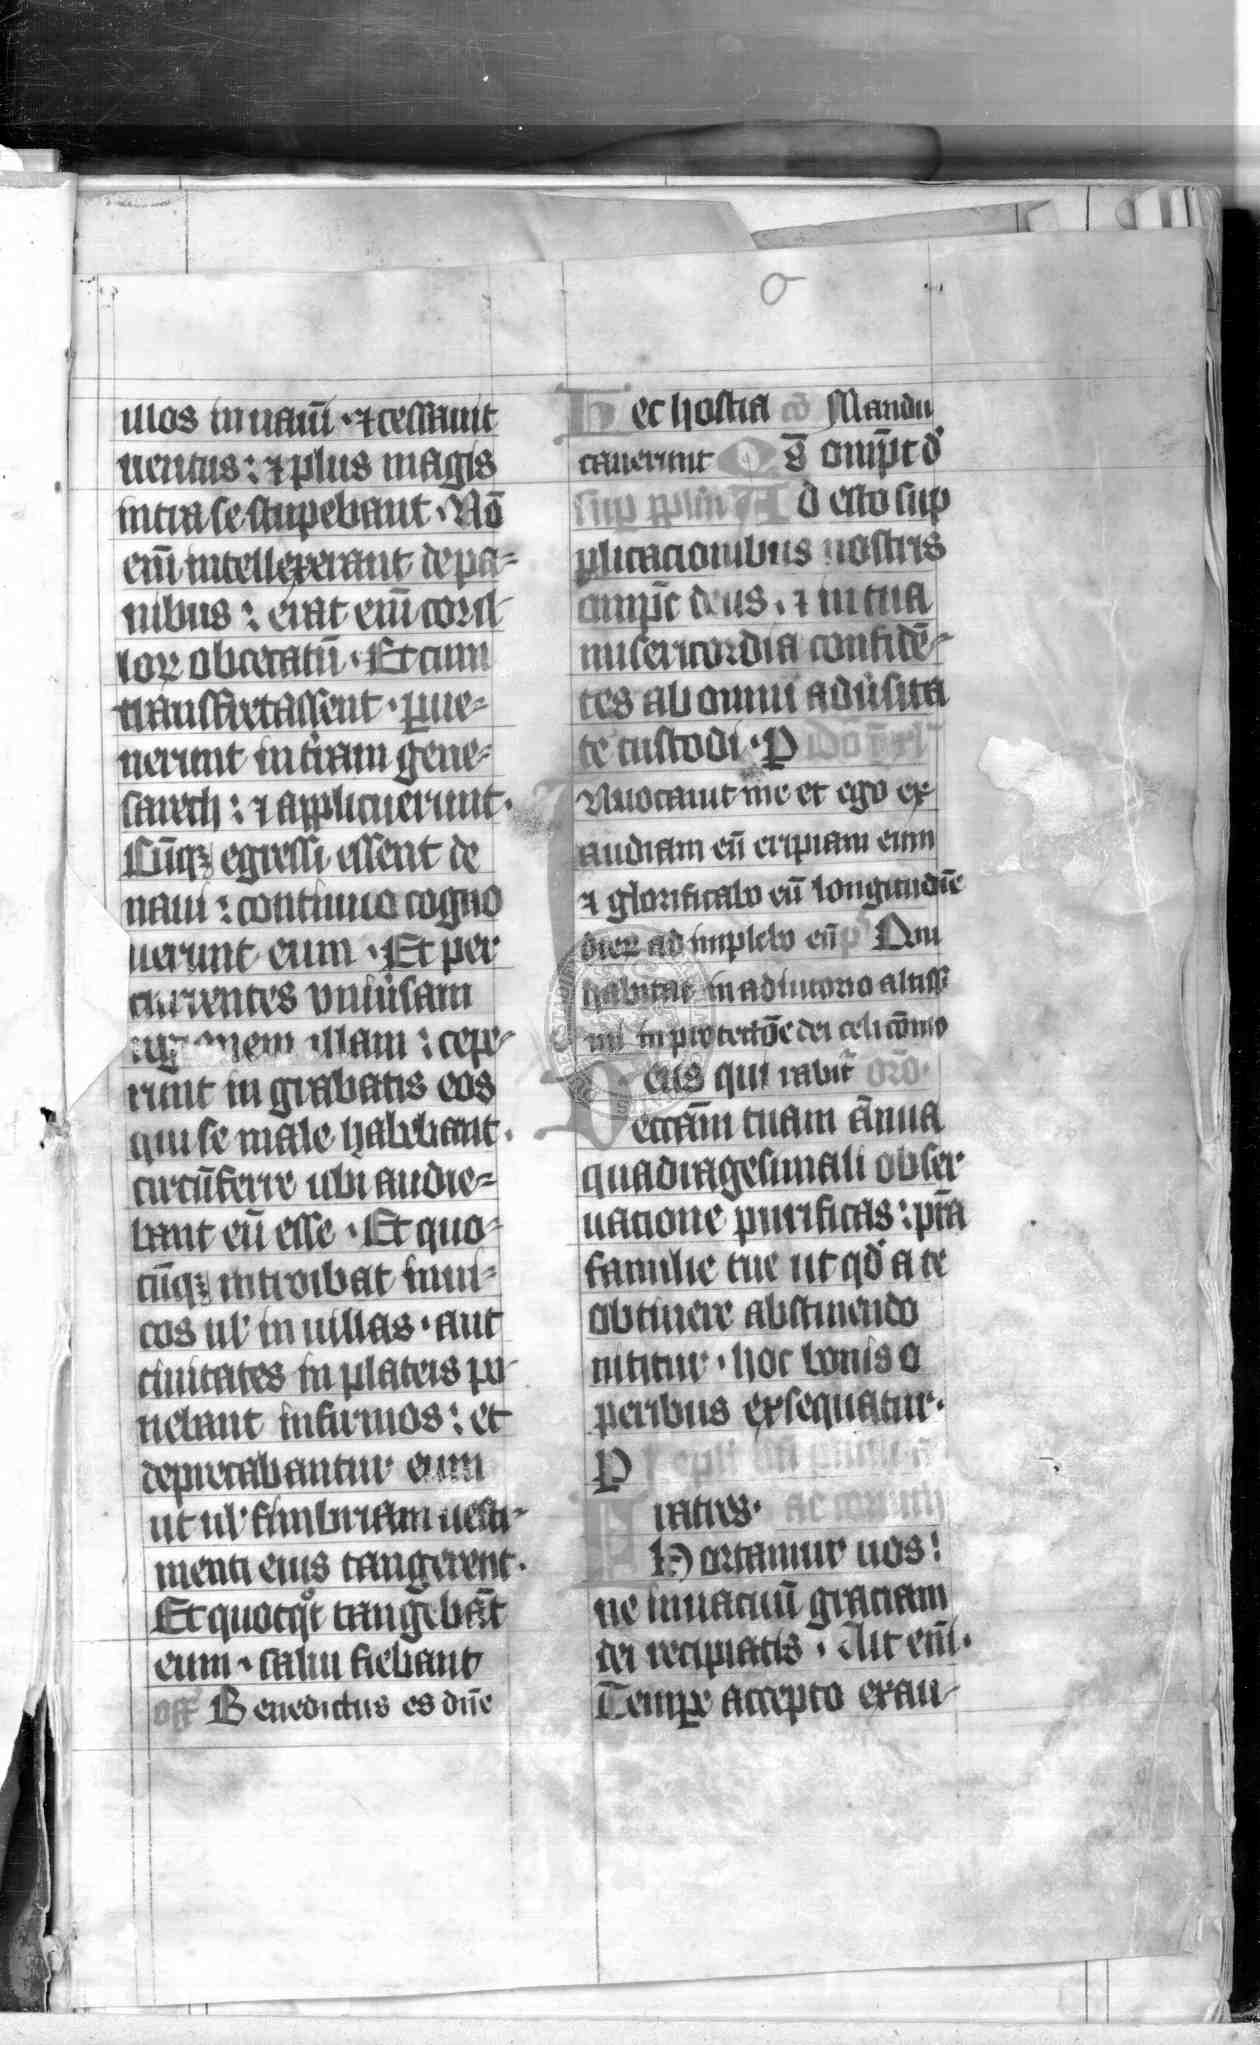 illos in nauim̅ · ⁊ cessauit
uentus : ⁊ plus magis
intra se stupebant · No̅
eni̅ intellexerant de pa-
nibus : erat eni̅ cor il-
loꝝ obcecatu̅ · Et cum
transfretassent · ꝑue-
nerunt in t̓ram gene-
sareth : ⁊ applicuerunt ·
Cu̅qꝫ egressi essent de
naui : continuo cogno
uerunt eum · Et per
currentes vniu̓sam
regionem illam : cepe-
runt in grabatis eos
qui se male habebant ·
circu̅ferre ubi audie-
bant eu̅ esse · Et quo-
cu̅qꝫ introibat in ui-
cos ul' in uillas · aut
ciuitates in plateis po-
nebant infirmos : et
deprecabantur eum
ut ul' fimbriam uesti-
menti eius tangerent ·
Et quotqͦt tangeba̅t
eum · salui fiebant
off Benedictus es dn̅e
Hec hostia co̅ Mandu
cauerunt Os̅ omp̅t d'
sup pplm̅ Ad esto sup
plicacionibus nostris
omp̅c deus · ⁊ in tua
misericordia confide̅-
tes ab omni adu̓sita
te custodi · P
Inuocauit me et ego ex
audiam eu̅ eripiam eum
⁊ glorificabo eu̅ longitudi̅e
dieꝝ ad implebo eu̅ p̅s Qui
habitat in adiutorio altissi
mi in protectio̅e dei celi co̅mo
Deus qui rabit̓ oro̅ ·
eccta̅m tuam a̅nua
quadragesimali obser
uatione purificas : pr̅a
familie tue ut qd' a te
obtinere abstinendo
nititur · hoc bonis o
peribus exsequatur ·
P
Fratres · ad corinth
Hortamur uos :
ne in uacuu̅ graciam
dei recipiatis · Ait eni̅ ·
Tempꝛe accepto exau-